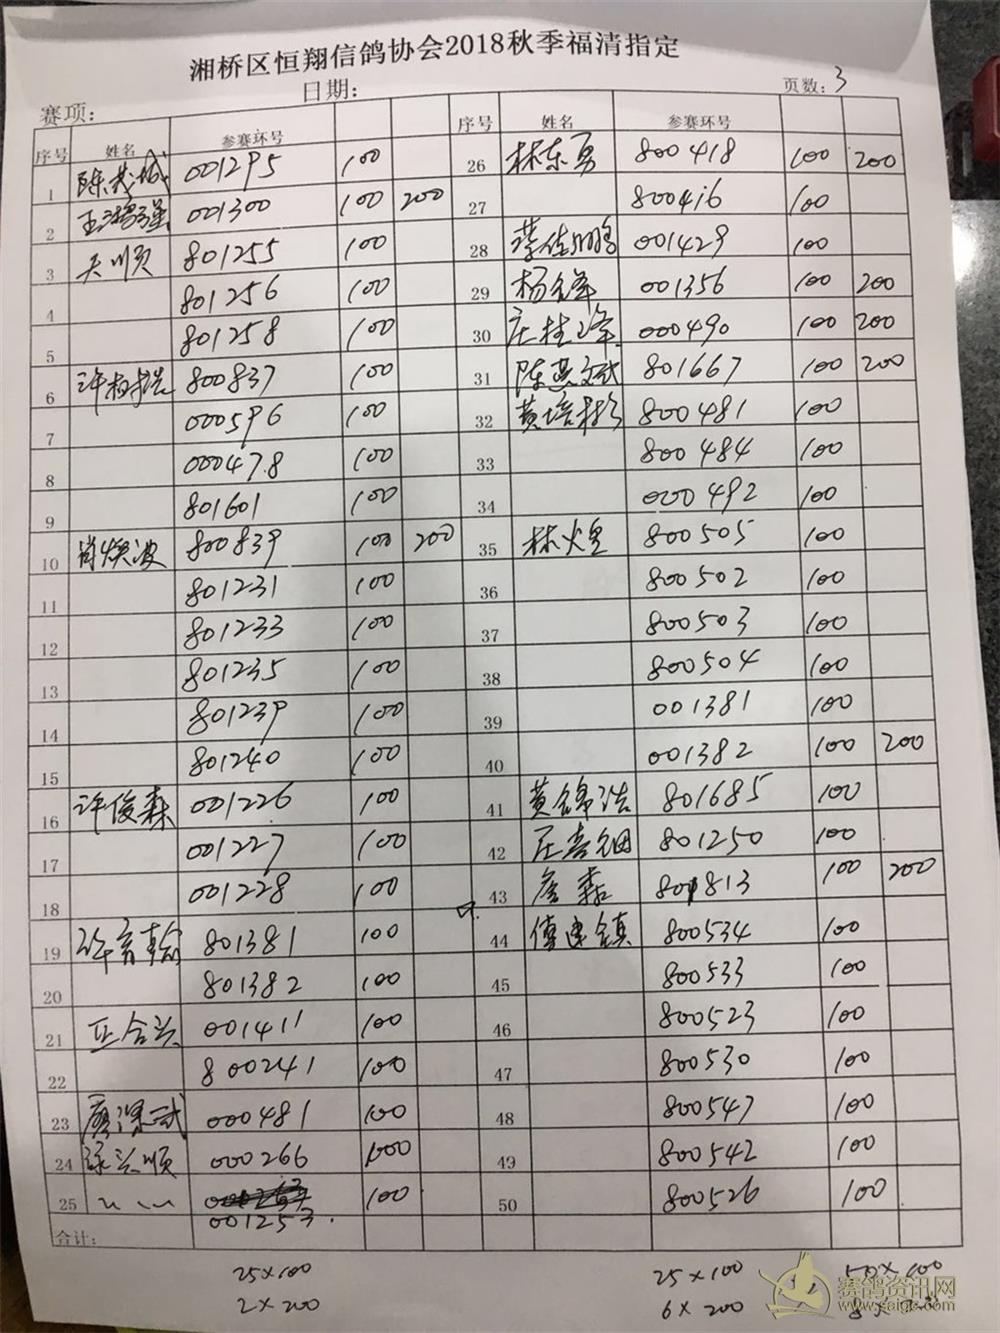 湘桥区恒翔信鸽协会2018秋季福清指定
赛项: 日期: 页数: 3
序号 姓名 参赛环号 序号 姓名 参赛环号
1 陈茂城 001295 100 26 林东勇 800418 100 200
2 王鸿强 001300 100 200 27 800416 100
3 吴顺 801255 100 28 蔡佳鹏 001429 100
4 801256 100 29 杨锋 001356 100 200
5 801258 100 30 庄桂峰 000490 100 200
6 许树浩 800837 100 31 陈燕文武 801667 100 200
7 000596 100 32 黄培彬 800481 100
8 000478 100 33 800484 100
9 801601 100 34 000492 100
10 肖焕波 800839 100 200 35 林火皇 800505 100
11 801231 100 36 800502 100
12 801233 100 37 800503 100
13 801235 100 38 800504 100
14 801239 100 39 001381 100
15 801240 100 40 001382 100 200
16 许俊森 001226 100 41 黄锦浩 801685 100
17 001227 100 42 庄喜钿 801250 100
18 001228 100 43 801813 100 200
19 许育 801381 100 44 傅建镇 800534 100
20 801382 100 45 800533 100
21 合兴 001411 100 46 800523 100
22 800241 100 47 800530 100
23 廖深武 000481 100 48 800547 100
24 兴顺 000266 100 49 800542 100
25 〃 〃 001253. 100 50 800526 100
合计:
25×100 25×100 50×100
2×200 6×200 8×200
赛鸽资讯网
www.saige.com